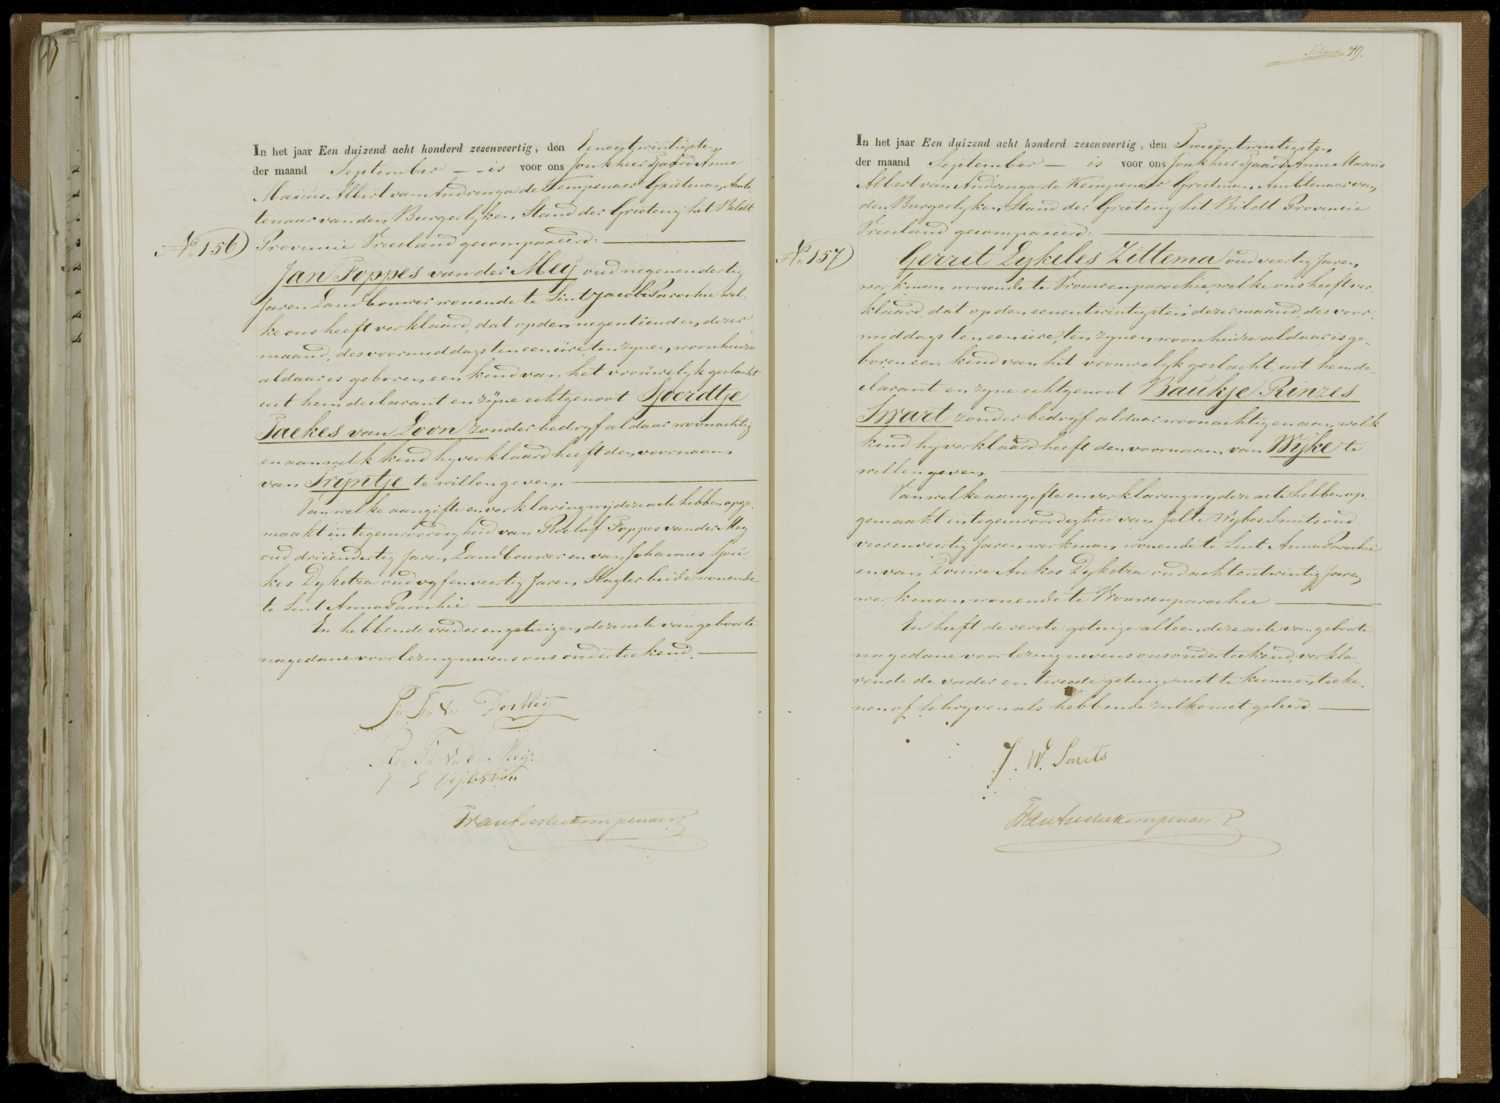 In het jaar Een duizend acht honderd zesenveertig, den Eenentwintigsten
der maand September is voor ons Jonkheer Tjaard Anne
Marius Albert van Andringa de Kempenaer Grietman, Amb-
tenaar van den Burgerlyken Stand der Grieteny het Bildt
Provincie Vriesland gecompareerd:
No. 156
Jan Poppes van der Mey oud negenendertig
Jaren Landbouwer wonende te Sint Jacobi Parochie wel-
ke ons heeft verklaard, dat op den negentienden dezer
maand, des voormiddags ten een ure, ten zynen woonhuize
aldaar is geboren een kind van het vrouwelyk geslacht
uit hem declarant en zyne echtgenoot Sjoerdtje
Taekes van Loon zonder bedryf aldaar woonachtig
en aan welk kind hy verklaard heeft den voornaam
van Tryntje te willen geven,
Van welke aangifte en verklaring wy deze acte hebben opge-
maakt in tegenwoordigheid van Roelof Poppes van der Mey
oud drieëndertig Jaren, Landbouwer en van Johannes
Dykstra oud vyfenveertig Jaren, Slagter beide wonende
te Sint Anna Parochie
En hebbende vader en getuigen, deze acte van geboorte
na gedane voorlezing nevens ons onderteekend.
79.
In het jaar Een duizend acht honderd zesenveertig, den Tweeëntwintigsten
der maand September is voor ons Jonkheer Tjaard Anne Marius
Albert van Andringa de Kempenaer Grietman, Ambtenaar van
den Burgerlyken Stand der Grieteny het Bildt Provincie
Vriesland gecompareerd:
No. 157
Gerrit Dykeles Zittema oud veertig Jaren,
werkman wonende te Vrouwenparochie, welke ons heeft ver-
klaard dat op den eenentwintigsten dezer maand, des voor-
middags ten een ure, ten zynen woonhuize aldaar is ge-
boren een kind van het vrouwelyk geslacht, uit hem de-
clarant en zyne echtgenoot Baukje Rinzes
Swart zonder bedryf aldaar woonachtig en aan welk
kind hy verklaard heeft den voornaam van Wyke te
willen geven,
Van welke aangifte en verklaring wy deze acte hebben op-
gemaakt in tegenwoordigheid van Jelte Wybes Smits oud
vierenveertig Jaren, werkman, wonende te Sint Anna Parochie
en van Douwe Ankes Dykstra oud achtentwintig Jaren,
werkman, wonende te Vrouwenparochie
En heeft de eerste getuige alleen deze acte van geboorte
na gedane voorlezing nevens ons onderteekend, verkla-
rende de vader en tweede getuige niet te kunnen teeke-
nen of schryven als hebbende zulks niet geleerd
J. W. Smits